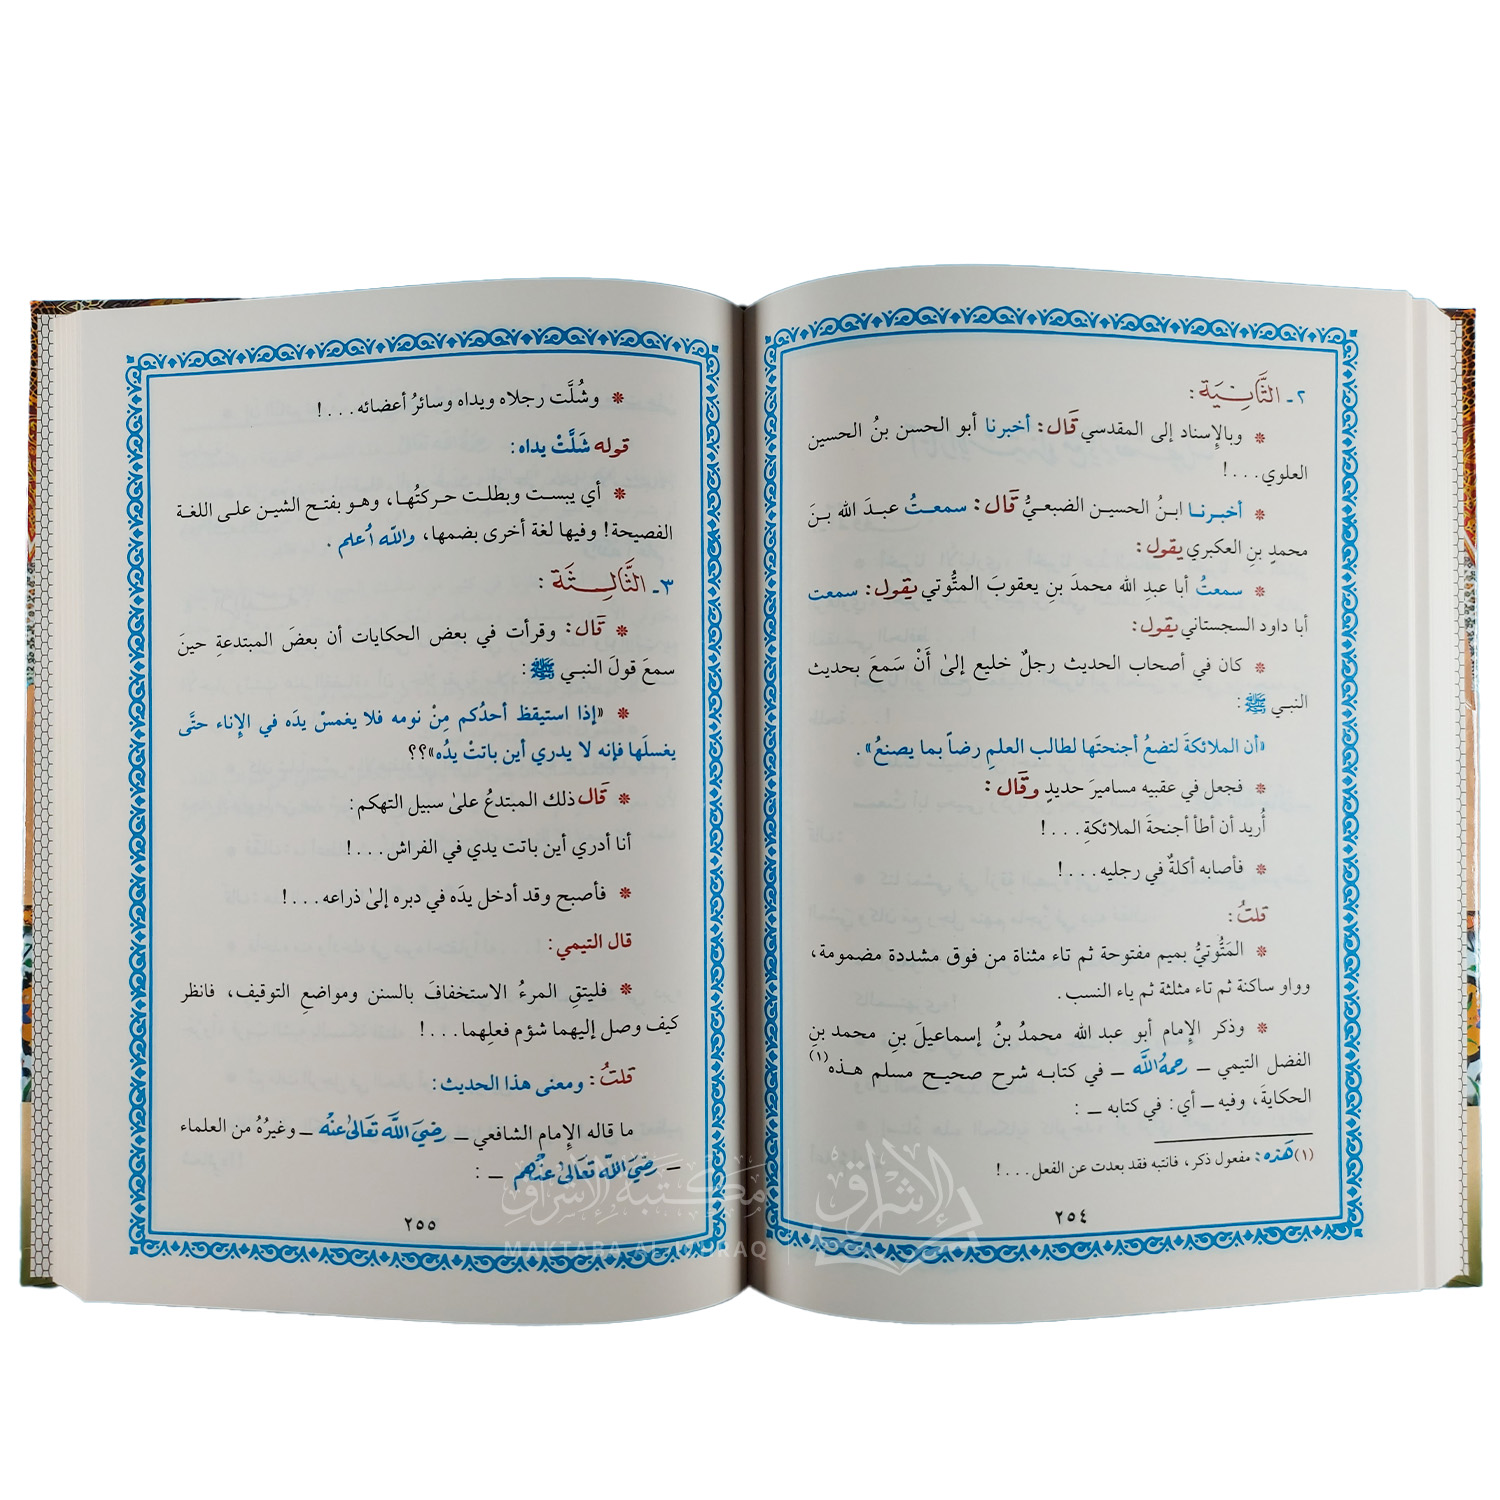 ٢ـ الثَّانِيَة:
* وبالإسناد إلى المقدسي قَال: أخبرنا أبو الحسن بنُ الحسين
العلوي...!
* أخبرنـا ابـنُ الحسيـن الضبعـيُّ قَال: سمعـتُ عبـدَ الله بـنَ
محمدِ بنِ العكبري يقول:
* سمعتُ أبا عبدِ الله محمدَ بنِ يعقوبَ المتُّوتي يقول: سمعت
أبا داود السجستاني يقول:
* كان في أصحاب الحديث رجلٌ خليع إلىٰ أَنْ سَمعَ بحديث
النبـي ﷺ:
«أن الملائكةَ لتضعُ أجنحتَها لطالب العلمِ رضاً بما يصنعُ».
* فجعل في عقبيه مساميرَ حديدٍ وقَال:
أُريد أن أطأ أجنحةَ الملائكةِ...!
* فأصابه أكلةٌ في رجليه...!
قلتُ:
* المَتُّوتيُّ بميم مفتوحة ثم تاء مثناة من فوق مشددة مضمومة،
وواو ساكنة ثم تاء مثلثة ثم ياء النسب.
* وذكر الإمام أبو عبد الله محمدُ بنُ إسماعيلَ بنِ محمد بنِ
الفضل التيمي ـ رحمهُ اللَّه ـ في كتابـه شرح صحيـح مسلم هـذه(١)
الحكايةَ، وفيه ـ أي: في كتابه ـ:
(١) هَذه: مفعول ذكر، فانتبه فقد بعدت عن الفعل...!
٢٥٤
* وشُلَّت رجلاه ويداه وسائرُ أعضائه...!
قوله شَلَّتْ يداه:
* أي يبست وبطلت حركتُهـا، وهـو بفتـح الشين علـى اللغة
الفصيحة! وفيها لغة أخرى بضمها، واللّه أعلم.
٣ـ الثَّالِثَة:
* قَال: وقرأت في بعض الحكايات أن بعضَ المبتدعةِ حينَ
سمعَ قولَ النبـي ﷺ:
* «إذا استيقظ أحدُكم مِنْ نومه فلا يغمسْ يدَه في الإناء حتَّى
يغسلَها فإنه لا يدري أين باتتْ يدُه»؟؟
* قَال ذلك المبتدعُ علىٰ سبيل التهكم:
أنا أدري أين باتت يدي في الفراش...!
* فأصبح وقد أدخل يدَه في دبره إلىٰ ذراعه...!
قال التيمي:
* فليتقِ المرءُ الاستخفافَ بالسنن ومواضعِ التوقيف، فانظر
كيف وصل إليهما شؤم فعلِهما...!
قلتُ: ومعنى هذا الحديث:
ما قاله الإمام الشافعي ـ رضيَ اللَّه تعَالىٰ عنهُ ـ وغيرُهُ من العلماء
ـ رضَيَ اللَّه تعَالىٰ عنهُم ـ:
٢٥٥
مكتبة الإشراق
MAKTABA AL-ISHRAQ
الإشراق